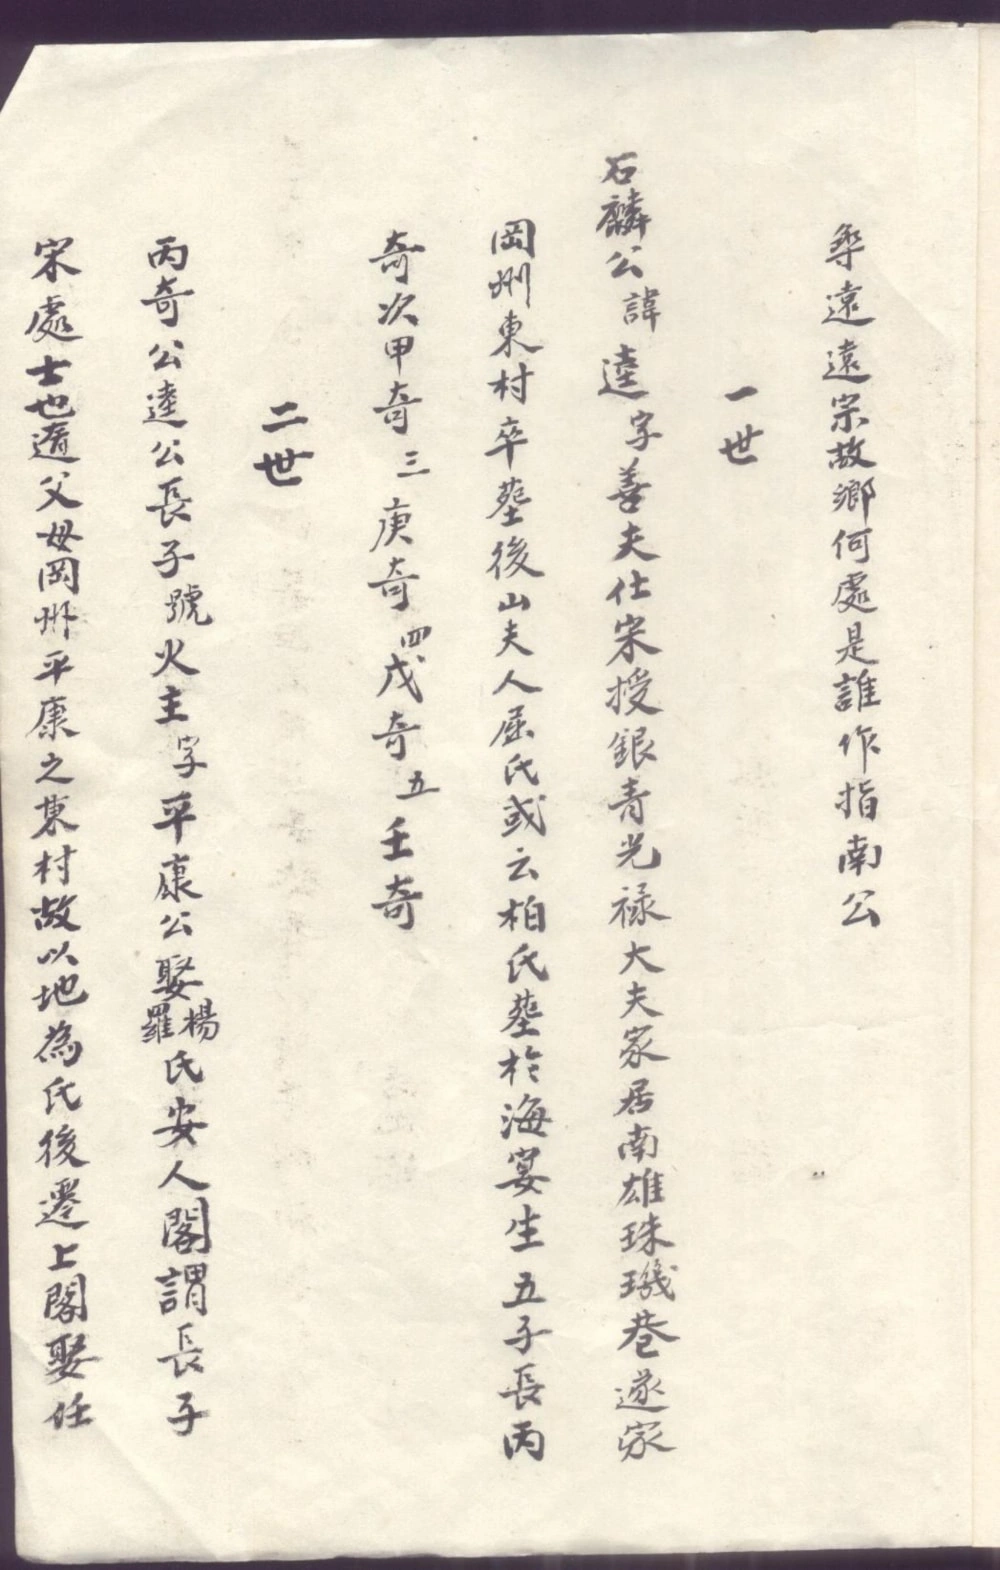 遠遠宗故鄉何處是誰作指南公
一世
石麟公諱逵字善夫仕宋授銀青光禄大夫家居南雄珠璣巷遂家
岡州東村卒塟後山夫人屈氏或云柏氏塟於海宴生五子長丙
奇次甲奇三庚奇四戊奇五壬奇
二世
丙奇公逵公長子號火主字平康公娶楊羅氏安人閣謂長子
宋處士也遁父母岡州平康之東村故以地為氏後遷上閣娶任